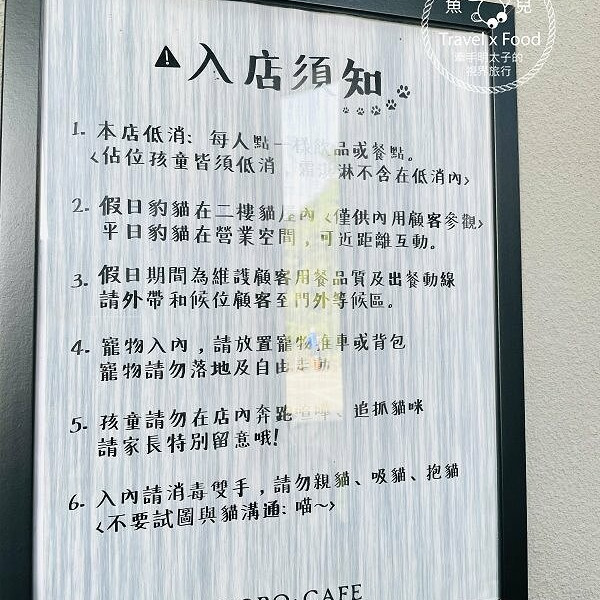 魚 兒
Travel x Food
牽手明太子的
視界旅行
入店須知
1. 本店低消: 每人點一樣飲品或餐點。
<佔位孩童皆須低消 霜淇淋不含在低消內>
2. 假日豹貓在二樓貓屋內<僅供內用顧客參觀>
平日豹貓在營業空間，可近距離互動。
3. 假日期間為維護顧客用餐品質及出餐動線
請外帶和候位顧客至門外等候區。
4. 寵物入內，請放置寵物推車或背包
寵物請勿落地及自由走動
5. 孩童請勿在店內奔跑喧嘩、追抓貓咪
請家長特別留意哦!
6. 入內請消毒雙手，請勿親貓、吸貓、抱貓
<不要試圖與貓溝通: 喵~>
CAFE